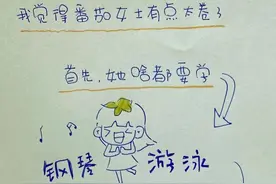 我觉得番茄女士有点太卷了
首先,她啥都要学
钢琴 游泳